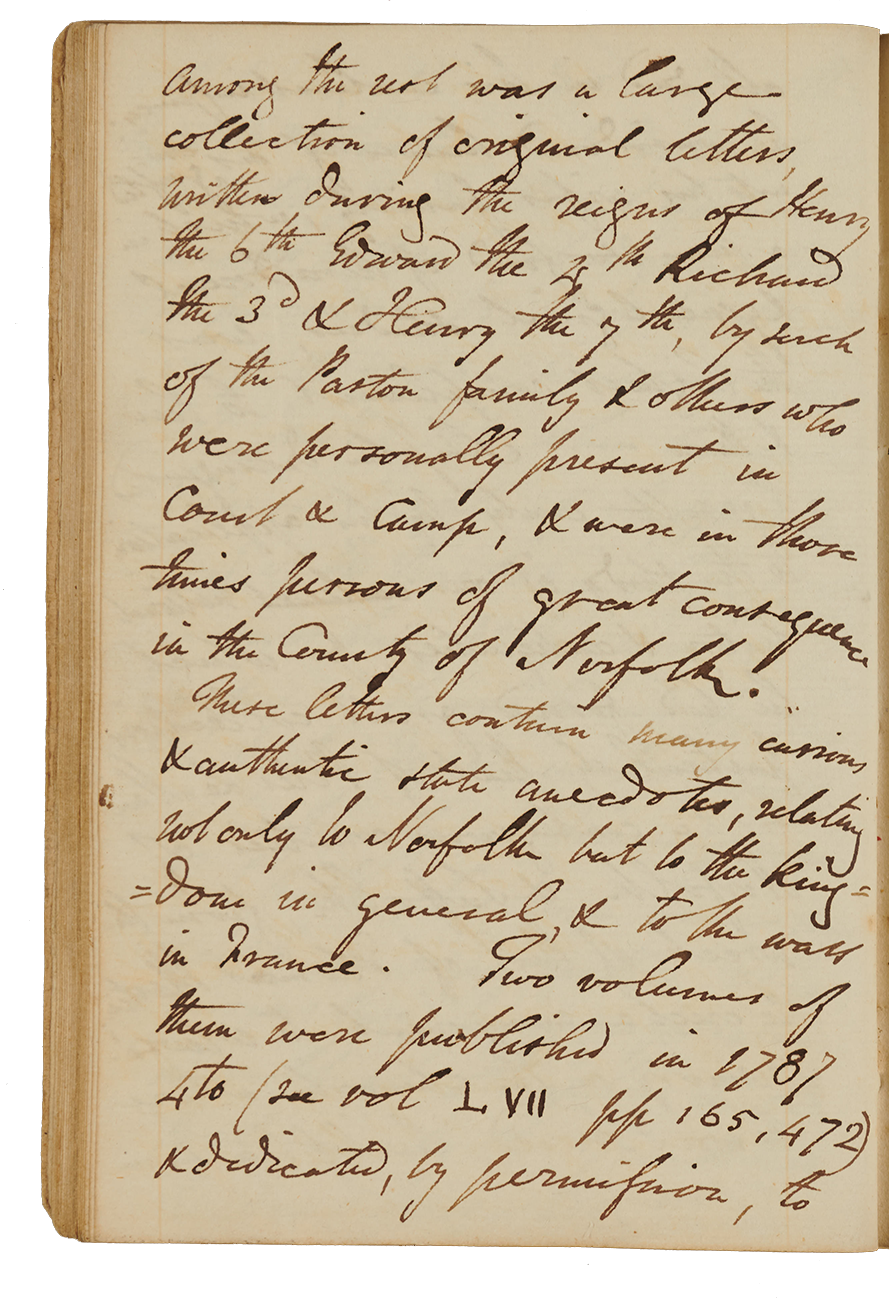 among the rest was a large
collection of original letters,
written during the reigns of Henry
the 6th Edward the 4th Richard
the 3d & Henry the 7th, by such
of the Paston family & others who
were personally present in
Court & Camp, & were in those
times persons of great consequence
in the County of Norfolk.
These letters contain many curious
& authentic state anecdotes, relating
not only to Norfolk but to the King=
=dom in general, & to the wars
in France. Two volumes of
them were published in 1787
4to (see vol LVII pp 165, 472)
& dedicated, by permission, to